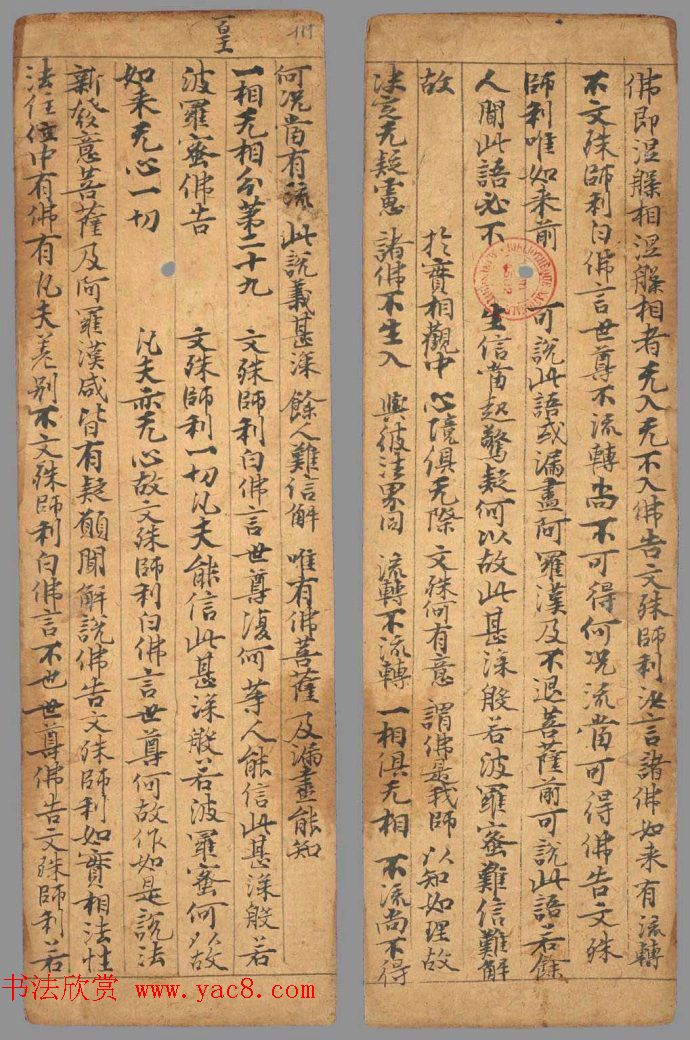 佛即涅槃相涅槃相者无入无不入佛告文殊師利汝言諸佛如来有流轉
不文殊師利白佛言世尊不流轉尚不可得何况流當可得佛告文殊
師利唯如来前 可說此語或漏盡阿羅漢及不退菩薩前可說此語若餘
人聞此語必不 生信當起驚疑何以故此甚深般若波羅蜜難信難解
故 於實相觀中 心境俱无際 文殊何有意 謂佛是我師 以知如理故
决定无疑慮 諸佛不生入 與彼法界同 流轉不流轉 一相俱无相 不流尚不得
何况當有流 此說義甚深 餘人難信解 唯有佛菩薩 及漏盡能知
一相无相分第二十九 文殊師利白佛言世尊復何等人能信此甚深般若
波羅蜜佛告 文殊師利一切凡夫能信此甚深般若波羅蜜何以故
如来无心一切 凡夫亦无心故文殊師利白佛言世尊何故作如是說法
新發意菩薩及阿羅漢咸皆有疑願聞解說佛告文殊師利如實相法性
法住位中有佛有凡夫差别不文殊師利白佛言不也世尊佛告文殊師利若
书法欣赏 www.yac8.com